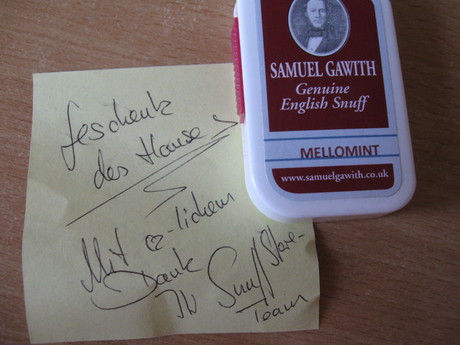 SAMUEL GAWITH
Genuine
English Snuff
MELLOMINT
www.samuelgawith.co.uk
Geschenk
des Hauses
Mit ♡-lichem
Dank
Ihr SnuffStore-
Team